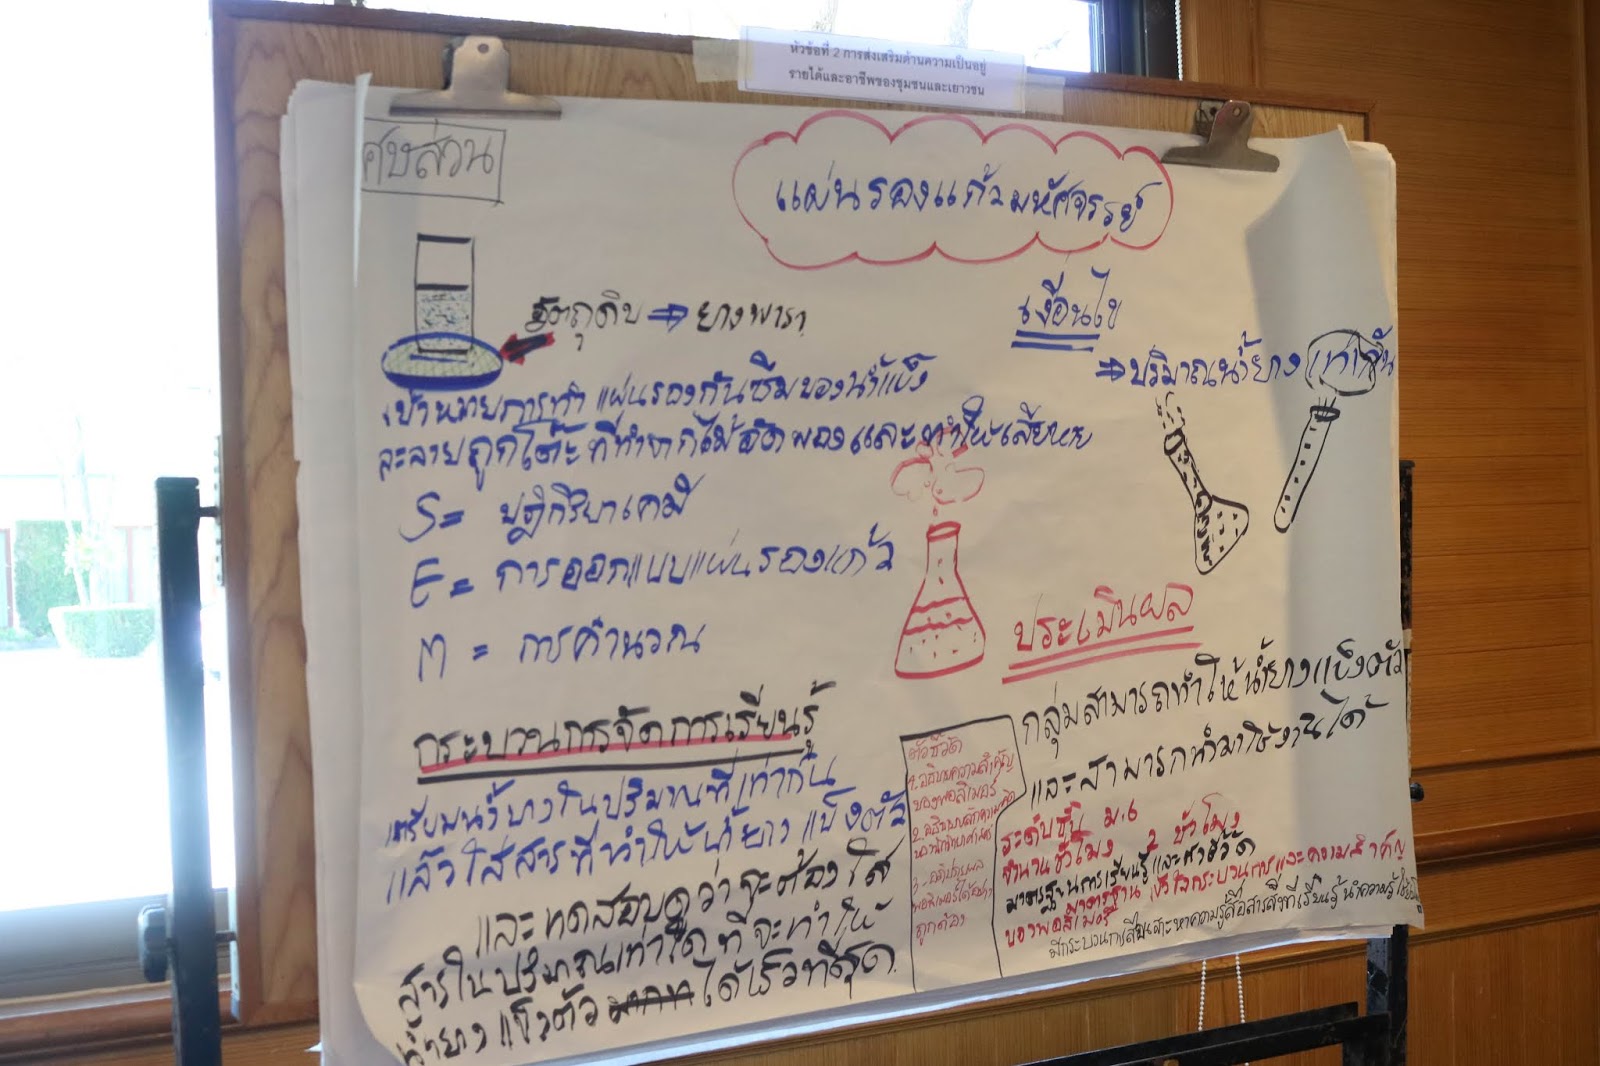 หัวข้อที่ 2 การส่งเสริมด้านความเป็นอยู่
รายได้และอาชีพของชุมชนและเยาวชน
แผ่นรองแก้วมหัศจรรย์
วัตถุดิบ ⇒ ยางพารา
เป้าหมายการทำ แผ่นรองกันซึมของน้ำแข็ง
ละลายถูกโต๊ะที่ทำจากไม้อัดพองและทำให้เสียหาย
S = ปฏิกิริยาเคมี
E = การออกแบบแผ่นรองแก้ว
M = การคำนวณ
เงื่อนไข
⇒ ปริมาณน้ำยางเท่ากัน
กระบวนการจัดการเรียนรู้
เตรียมน้ำยางในปริมาณที่เท่ากัน
แล้วใส่สารที่ทำให้น้ำยางแข็งตัว
และทดสอบดูว่าจะต้องใส่
สารในปริมาณเท่าใดที่จะทำให้
น้ำยางแข็งตัว ได้เร็วที่สุด
ประเมินผล
กลุ่มสามารถทำให้น้ำยางแข็งตัว
และสามารถนำมาใช้งานได้
ตัวชี้วัด
1. อธิบายความสำคัญ
ของพอลิเมอร์
2. อธิบาย
3.
พอลิเมอร์ได้อย่าง
ถูกต้อง
ระดับชั้น ม.6
จำนวนชั่วโมง 2 ชั่วโมง
มาตรฐานการเรียนรู้และตัวชี้วัด
มาตรฐาน เข้าใจกระบวนการและความสำคัญ
ของพอลิเมอร์
มีกระบวนการสืบเสาะหาความรู้สื่อสารสิ่งที่เรียนรู้นำความรู้